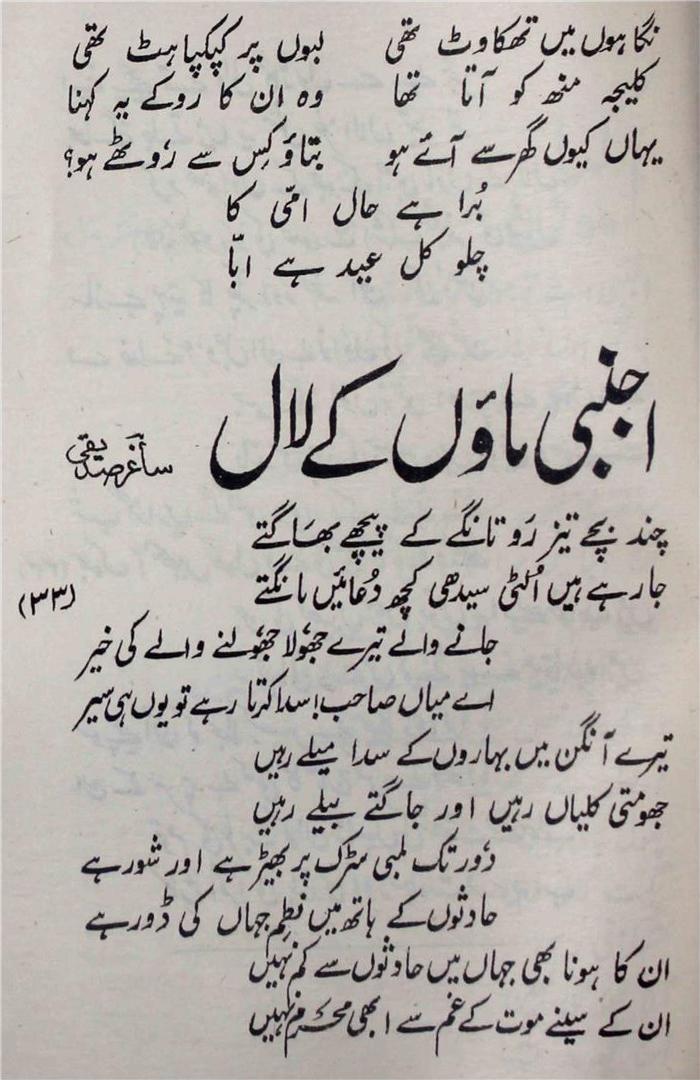 نگاہوں میں تھکاوٹ تھی لبوں پر کپکپاہٹ تھی
کلیجہ منھ کو آتا تھا وہ ان کا رو کے یہ کہنا
یہاں کیوں گھر سے آئے ہو بتاؤ کِس سے رُوٹھے ہو؟
بُرا ہے حال امّی کا
چلو کل عید ہے ابّا
اجنبی ماؤں کے لال
ساغر صدیقی
چند بچے تیز رَو تانگے کے پیچھے بھاگتے
جا رہے ہیں اُلٹی سیدھی کچھ دُعائیں مانگتے
(۳۳)
جانے والے تیرے جھُولا جھُولنے والے کی خیر
اے میاں صاحب! سدا کرتا رہے تو یوں ہی سیر
تیرے آنگن میں بہاروں کے سدا میلے رہیں
جھومتی کلیاں رہیں اور جاگتے بیلے رہیں
دُور تک لمبی سڑک پر بھیڑ ہے اور شور ہے
حادثوں کے ہاتھ میں نظمِ جہاں کی ڈور ہے
ان کا ہونا بھی جہاں میں حادثوں سے کم نہیں
ان کے سینے موت کے غم سے ابھی محرم نہیں